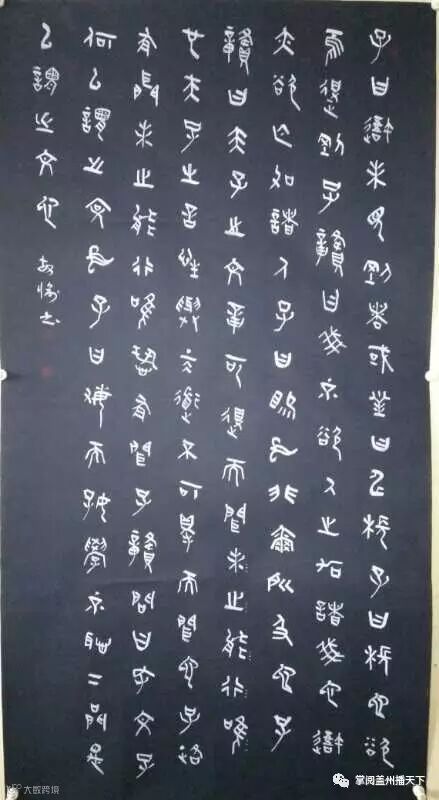 子曰吾未見剛者或對曰申棖子曰棖也欲
焉得剛子贛曰我不欲人之加諸我也吾
亦欲亡加諸人子曰賜也非爾所及也子
贛曰夫子之文章可得而聞未之能行唯
也夫子之言性與天道不可得而聞也子路
有聞未之能行唯恐有聞子贛問曰孔文子
何以謂之文也子曰敏而好學不恥下問是
以謂之文也
大数跨境
掌阅盖州播天下